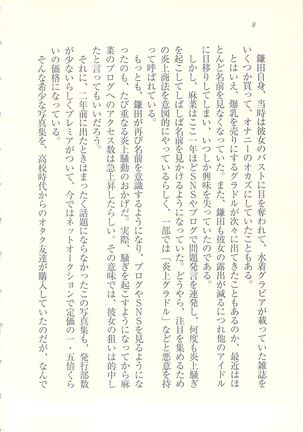 8
鎌田自身、当時は彼女のバストに目を奪われて、水着グラビアが載っていた雑誌を
いくつか買って、オナニーのオカズにしていたこともある。
とはいえ、爆乳を売りにするグラドルが次々に出てきたこともあるのか、最近はほ
とんど名前を見なくなっていた。また、鎌田も彼女の露出が減るにつれ他のアイドル
に目移りしてしまい、いつしか興味を失っていたのである。
しかし、麻菜はここ一年ほどSNSやブログで問題発言を連発し、何度も炎上騒ぎ
を起こしてしばしば名前を見かけるようになっていた。どうやら、注目を集めるため
の炎上商法を意図的にやっているらしく、一部では「炎上グラドル」などと悪意を持
って呼ばれている。
もっとも、鎌田が再び名前を意識するようになり、ブログやSNSを見るようにな
ったのも、たび重なる炎上騒動のおかげだ。実際、騒ぎを起こすようになってから麻
菜のブログへのアクセス数は急上昇したらしい。その意味では、彼女の狙いは的中し
たと言ってもいいだろう。
それに、二年前に出たときはまったく話題にならなかったこの写真集も、発行部数
が少ないらしくプレミアがついて、今ではネットオークションで定価の一・五倍くら
いの価格になっている。
そんな希少な写真集を、高校時代からのオタク友達が購入していたのだが、なんで